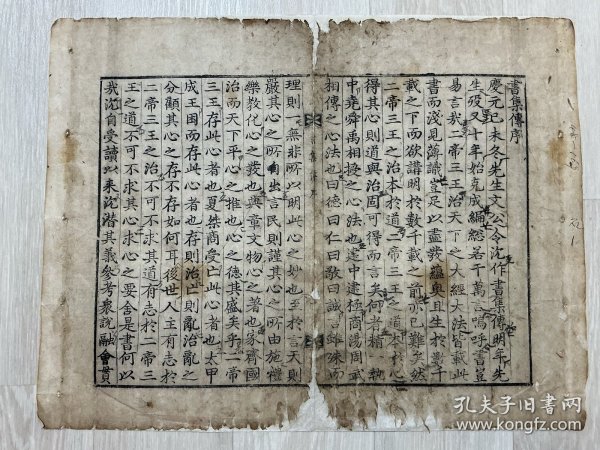 書集傳序
慶元己未冬先生文公令沈作書集傳明年先
生歿又十年始克成編總若干萬言嗚呼書豈
易言哉二帝三王治天下之大經大法皆載此
書而淺見薄識豈足以盡發蘊奧且生於數千
載之下而欲講明於數千載之前亦已難矣然
二帝三王之治本於道二帝三王之道本於心
得其心則道與治固可得而言矣何者精一執
中堯舜禹相授之心法也建中建極商湯周武
相傳之心法也曰德曰仁曰敬曰誠言雖殊而
理則一無非所以明此心之妙也至於言天則
嚴其心之所自出言民則謹其心之所由施禮
樂教化心之發也典章文物心之著也家齊國
治而天下平心之推也心之德其盛矣乎二帝
三王存此心者也夏桀商受亡此心者也太甲
成王困而存此心者也存則治亡則亂治亂之
分顧其心之存不存如何耳後世人主有志於
二帝三王之治不可不求其道有志於二帝三
王之道不可不求其心求心之要舍是書何以
哉沈自受讀以來沈潛其義參考衆說融會貫
孔夫子旧书网
www.kongfz.com